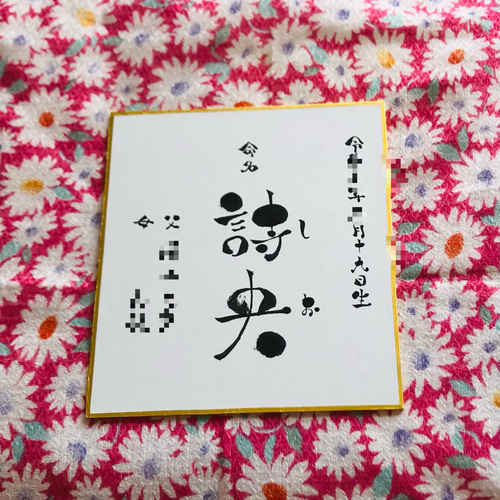 令和 年 月十九日生
命名
詩央
しお
父
母